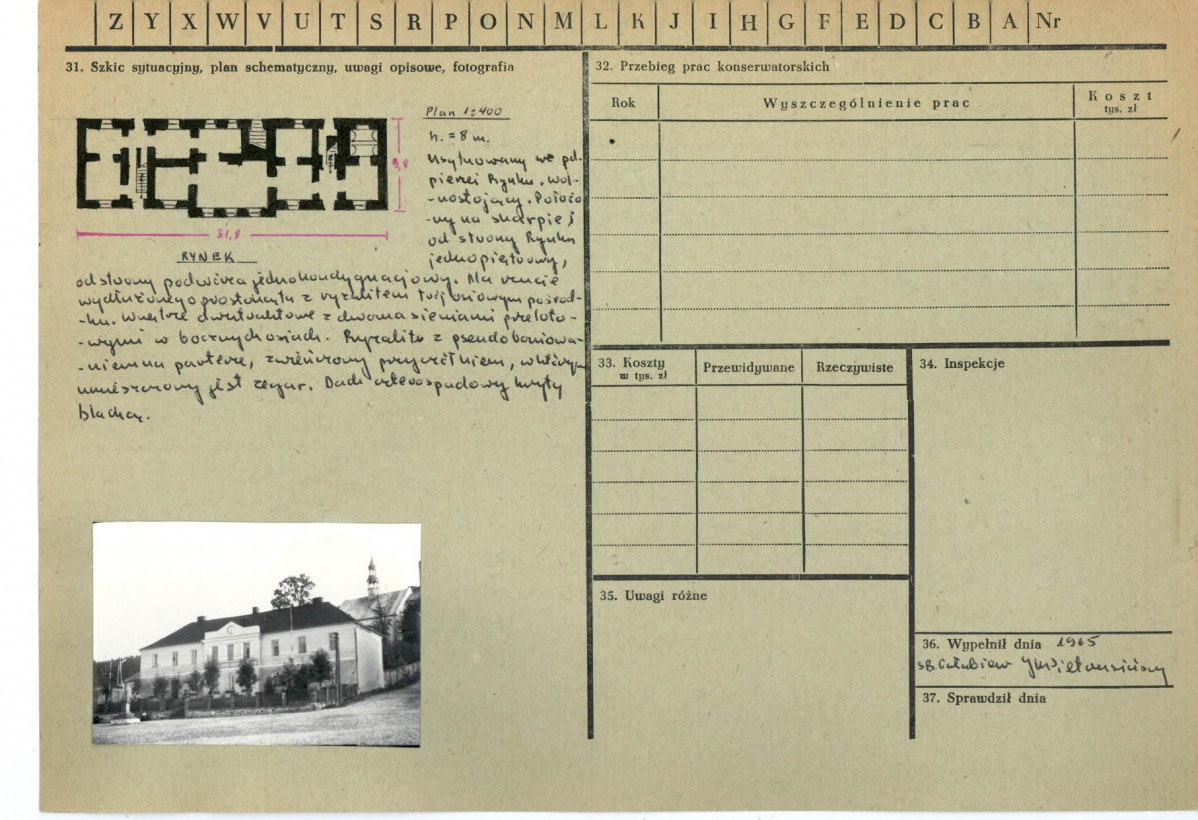 Z Y X W V U T S R P O N M L K J I H G F E D C B A Nr
31. Szkic sytuacyjny, plan schematyczny, uwagi opisowe, fotografia
Plan 1:400
h. = 8 m.
Usytuowany we pd.
pierzei Rynku, wol-
-nostojący. Położo
-ny na skarpie i
od strony Rynku
jednopiętrowy,
31,8
RYNEK
od strony podwórza jednokondygnacjowy. Na rzucie
wydłużonego prostokąta z ryzalitem trójosiowym pośrod-
-ku. Wnętrze dwutraktowe z dwoma sieniami przeloto-
-wymi w bocznych osiach. Ryzalit z pseudoboniowa-
-niem na parterze, zwieńczony przyczółkiem, w którym
umieszczony jest zegar. Dach czterospadowy kryty
blachą.
32. Przebieg prac konserwatorskich
Rok
Wyszczególnienie prac
Koszt
tys. zł
33. Koszty
w tys. zł
Przewidywane
Rzeczywiste
34. Inspekcje
35. Uwagi różne
36. Wypełnił dnia 1965
37. Sprawdził dnia